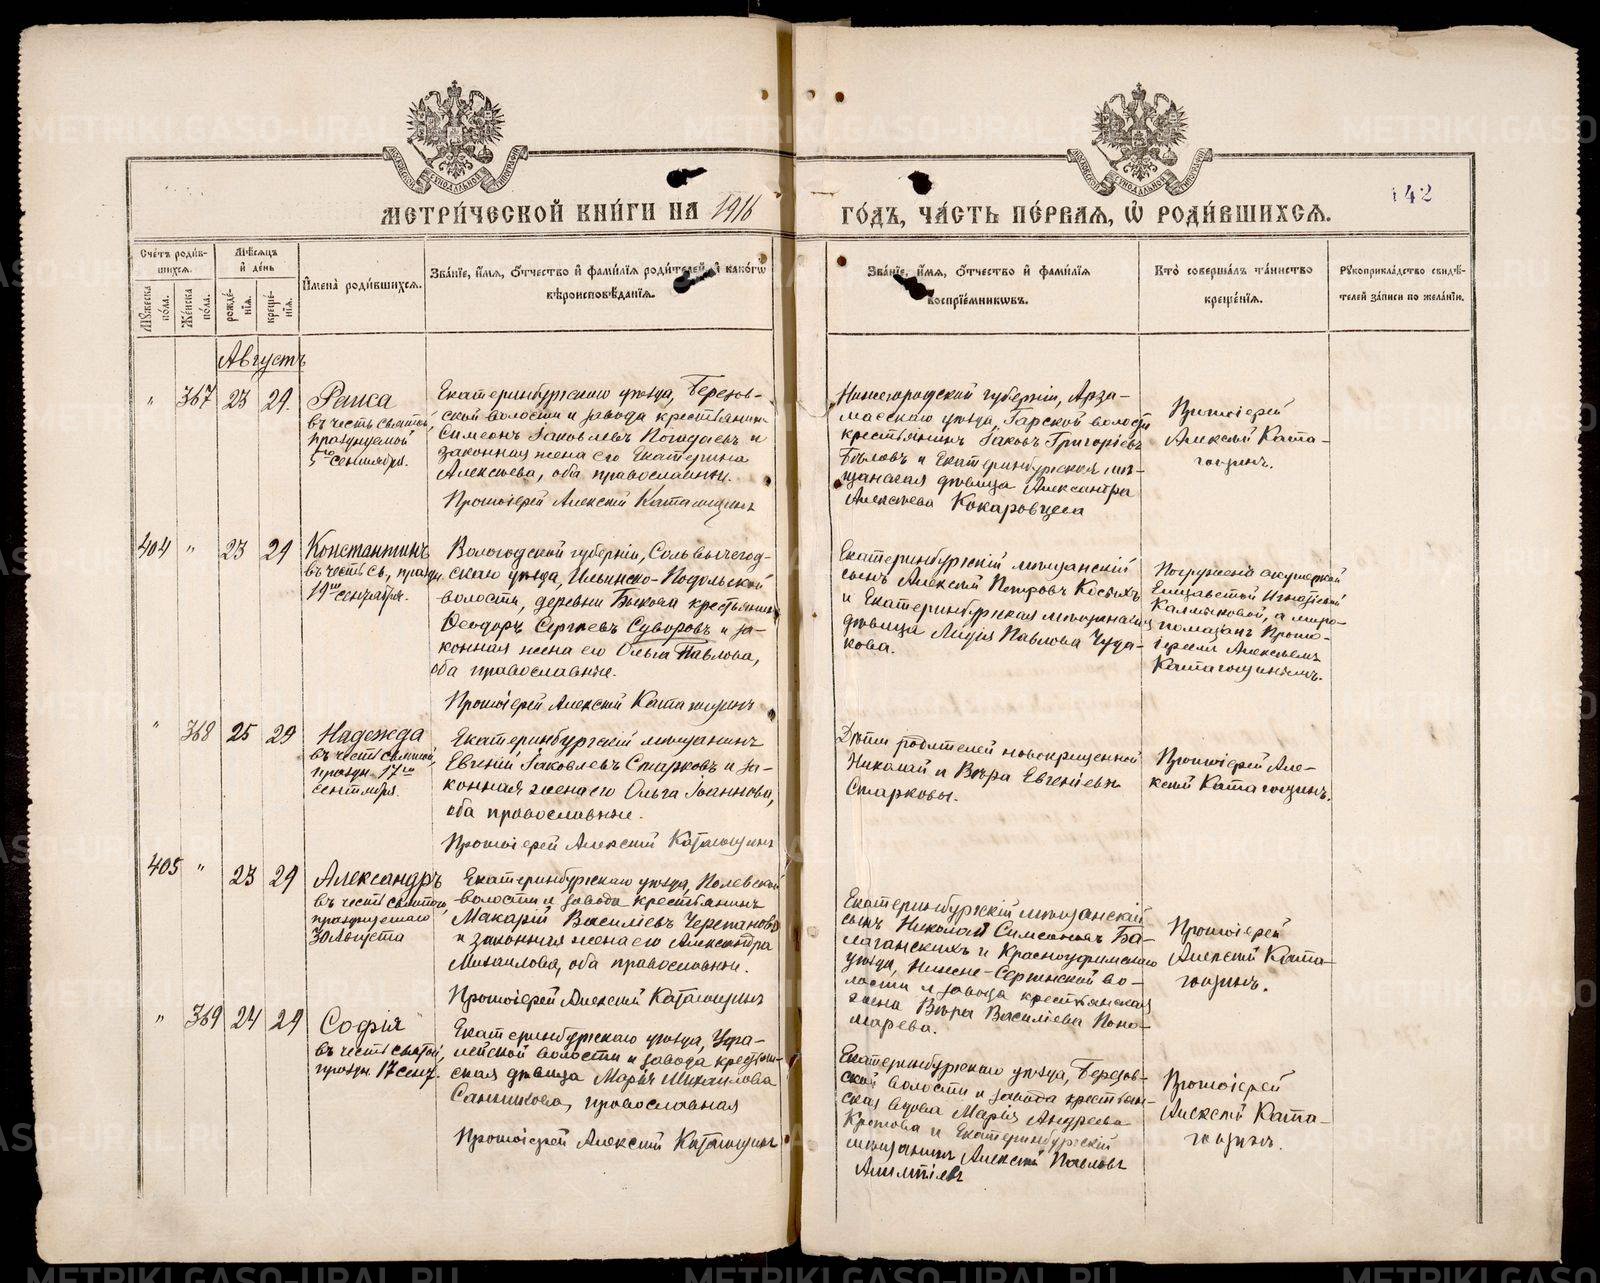 МЕТРИ́ЧЕСКОЙ КНИ́ГИ НА 1916
ГО́ДЪ, ЧА́СТЬ ПЕ́РВАЯ, Ѽ РОДИ́ВШИХСЯ.
142
Сче́тъ роди́в-
шихся.
Му́жеска по́ла.
Же́нска по́ла.
Мѣ́сяцъ
и де́нь
рожде́-
нїя.
креще́-
нїя.
И҆мена̀ роди́вшихся.
Зва́нїе, и҆́мя, ѻ҆́тчество и҆ фами́лїя роди́телей, и҆ како́гѡ
вѣроисповѣ́данїя.
Зва́нїе, и҆́мя, ѻ҆́тчество и҆ фами́лїя
воспрїе́мниковъ.
Кто̀ соверша́лъ та́инство
креще́нїя.
Рꙋкоприкла́дство свидѣ́-
телей за́писи по жела́нїю.
Августъ
" 367 23 29.
Раиса
въ честь святой,
празднуемой
5го сентября.
Екатеринбургскаго уѣзда, Березов-
ской волости и завода крестьянинъ
Симеонъ Іаковлевъ Погадаевъ и
законная жена его Екатерина
Алексѣева, оба православные.
Протоіерей Алексій Катагощинъ
Нижегородской губерніи, Арза-
масскаго уѣзда, Гарской волости
крестьянинъ Іаковъ Григоріевъ
Бѣловъ и Екатеринбургская мѣ-
щанская дѣвица Александра
Алексѣева Кокаровцева
Протоіерей
Алексій Ката-
гощинъ.
404 " 23 29
Константинъ
въ честь св., праздн.
19го сентября.
Вологодской губерніи, Сольвычегод-
скаго уѣзда, Ильинско-Подольской
волости, деревни Быкова крестьянинъ
Ѳеодоръ Сергіевъ Суворовъ и за-
конная жена его Ольга Павлова,
оба православные.
Протоіерей Алексій Катагощинъ
Екатеринбургскій мѣщанскій
сынъ Алексій Петровъ Костыхъ
и Екатеринбургская мѣщанская
дѣвица Лидія Павлова Чуда-
кова.
Погружена акушеркой
Елизаветой Игнатіевой
Калмыковой, а миро-
помазанъ Прото-
іереемъ Алексѣемъ
Катагощинымъ.
" 368 25 29
Надежда
въ честь святой,
праздн. 17го
сентября
Екатеринбургскій мѣщанинъ
Евгеній Іаковлевъ Старковъ и за-
конная жена его Ольга Іоаннова,
оба православные.
Протоіерей Алексій Катагощинъ
Дѣти родителей новокрещенной
Николай и Вѣра Евгеніевы
Старковы.
Протоіерей Але-
ксій Катагощинъ.
405 " 23 29
Александръ
въ честь святого,
празднуемаго
30 Августа
Екатеринбургскаго уѣзда, Полевской
волости и завода крестьянинъ
Макарій Василіевъ Черепановъ
и законная жена его Александра
Михаилова, оба православные.
Протоіерей Алексій Катагощинъ
Екатеринбургскій мѣщанскій
сынъ Николай Симеоновъ Ба-
лаганскихъ и Красноуфимскаго
уѣзда, Нижне-Сергинской во-
лости и завода крестьянская
жена Вѣра Василіева Поно-
марева.
Протоіерей
Алексій Ката-
гощинъ.
" 369 24 29
Софія
въ честь святой,
праздн. 17 сент.
Екатеринбургскаго уѣзда, Уфа-
лейской волости и завода крестьян-
ская дѣвица Марія Михаилова
Санникова, православная
Протоіерей Алексій Катагощинъ
Екатеринбургскаго уѣзда, Березов-
ской волости и завода крестьян-
ская вдова Марія Андреева
Кротова и Екатеринбургскій
мѣщанинъ Алексій Павловъ
Протоіерей
Алексій Ката-
гощинъ.
METRIKI.GASO-URAL.RU